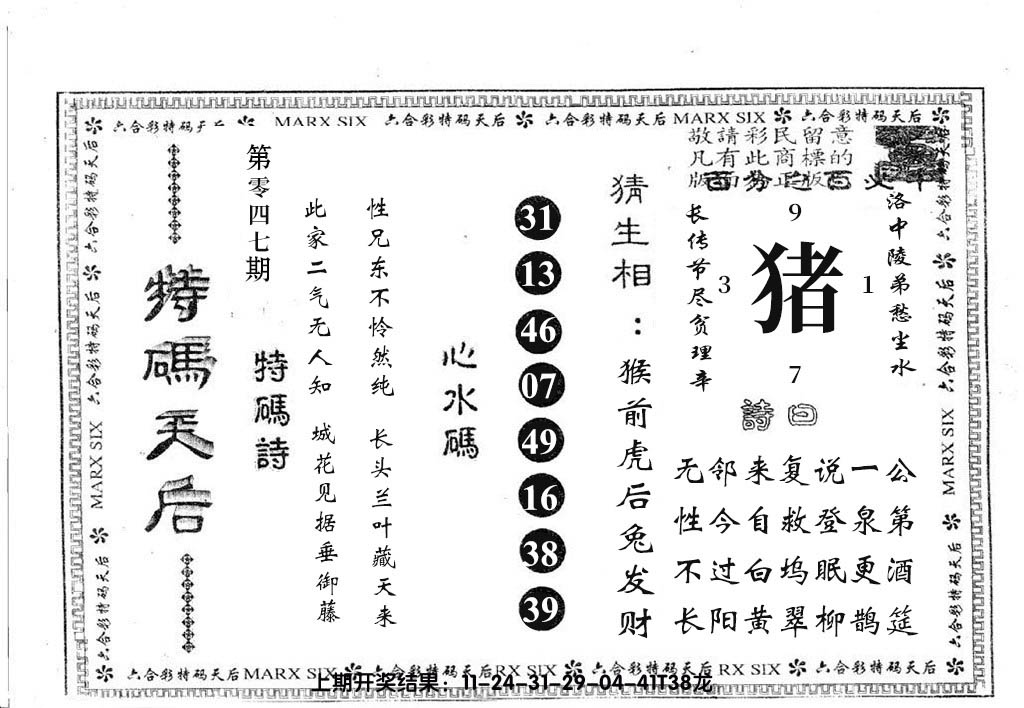 六合彩特码天后 MARX SIX 六合彩特码天后 六合彩特码天后 MARX SIX 六合彩特码天后
敬請彩民留意
凡有此商標的
版面分正版
洛中陵弟愁尘水
9
3
猪
1
7
长传节尽贫理辛
詩曰
公第酒筵
一泉更鹊
说登眠柳
复救坞翠
来自白黄
邻今过阳
无性不长
猜生相：猴前虎后兔发财
31
13
46
07
49
16
38
39
心水碼
性兄东不怜然纯 长头兰叶藏天来
此家二气无人知 城花见据垂御藤
第零四七期
特碼詩
特碼天后
六合彩特码天后 MARX SIX 六合彩特码天后
六合彩特码天后 MARX SIX 六合彩特码天后
六合彩特码天后 MARX SIX 六合彩特码天后 RX SIX 六合彩特码天后 RX SIX 六合彩特码天后
上期开奖结果：11-24-31-29-04-41T38龙